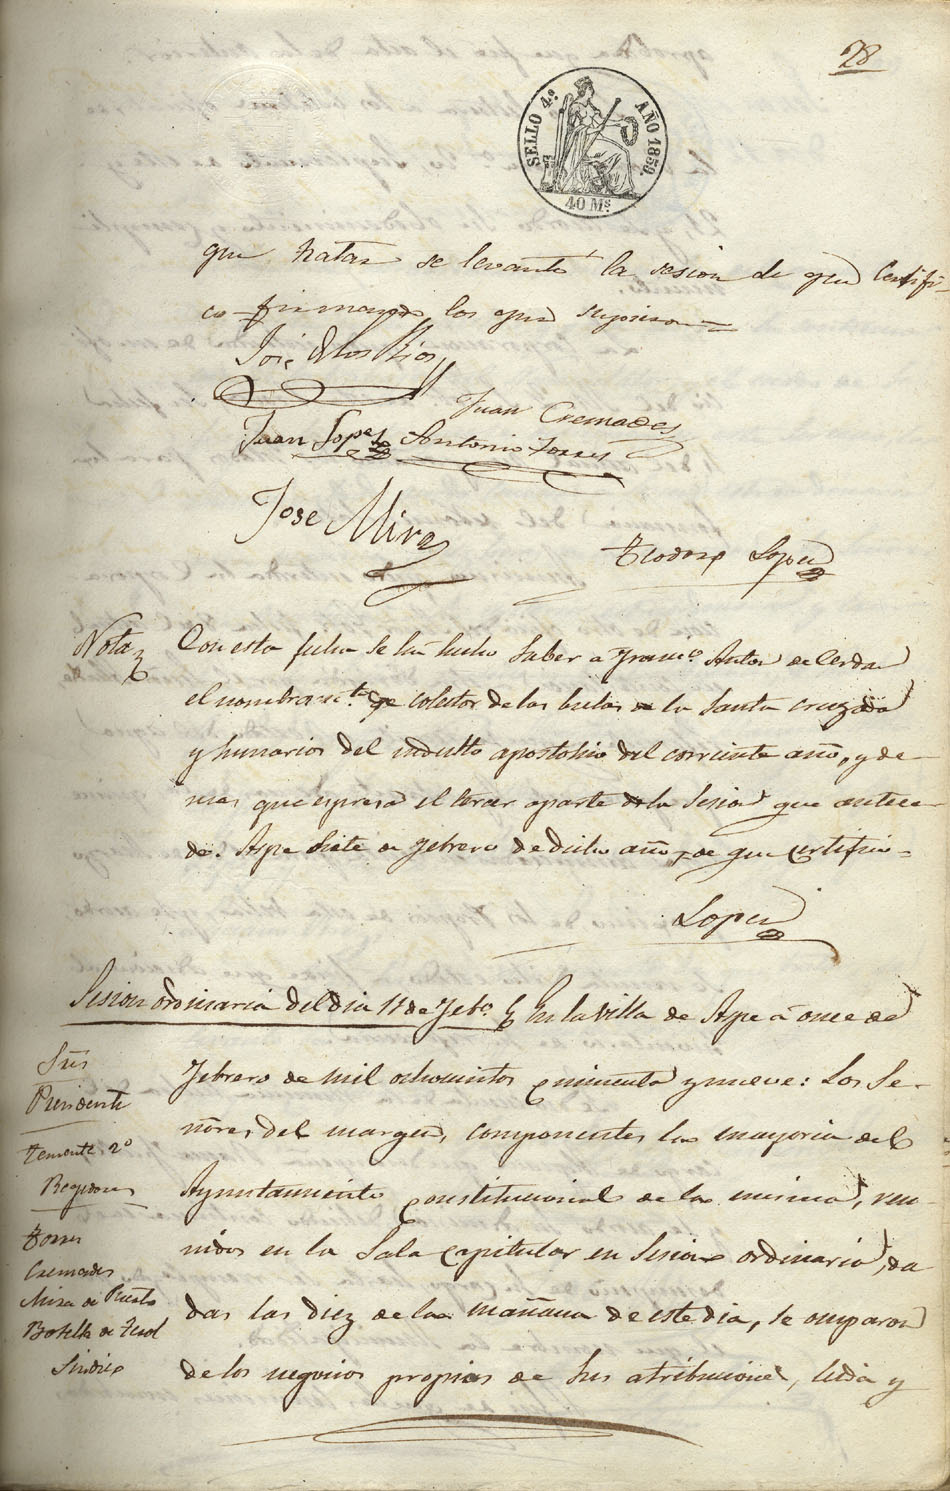 28
SELLO 4.º AÑO 1859.
40 Ms
que tratar se levantó la sesion de que Certifi-
co firmando los que supieron =
José de los Rios
Juan Cremades
Juan Lopez Antonio Torres
Jose Mira
Teodoro Lopez
Nota Con esta fecha se ha hecho saber a Franco. Anton de Cerdan
el nombramto. de colector de las bulas de la Santa cruzada
y sumarios del indulto apostolico del corriente año, y de-
mas que espresa el tercer aparte de la Sesion que antece-
de. Aspe Siete de Febrero de dicho año, de que certifico =
Lopez
Sesion ordinaria del dia 11 de Febo. En la Villa de Aspe á once de
Febrero de mil ochocientos cincuenta y nueve: Los Se-
ñores del margen, componentes la mayoria del
Ayuntamiento constitucional de la misma, reu-
nidos en la Sala capitular en Sesion ordinaria, da
das las diez de la mañana de este dia, se ocuparon
de los negocios propios de sus atribuciones, leida y
Sres
Presidente
Teniente 2º
Regidores
Torres
Cremades
Mira de Puerto
Botella de Terol
Sindico